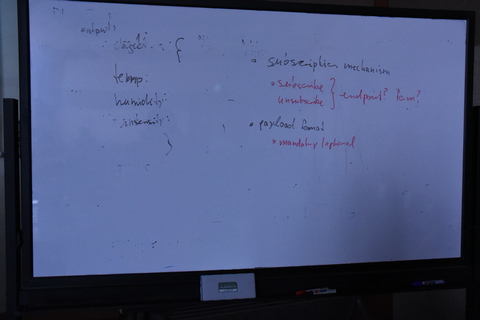 output:
object: {
temp:
humidity:
intensity:
}
• subscription mechanism
• subscribe
unsubscribe } endpoint?
• payload format
• mandatory / optional